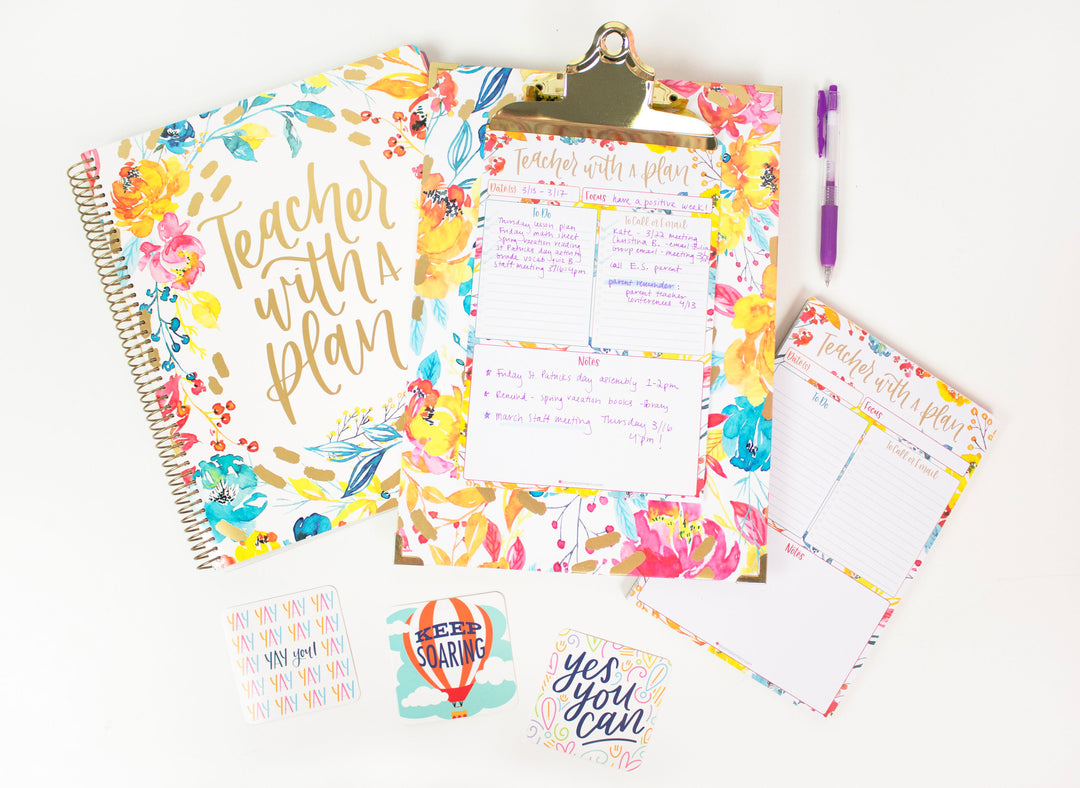 Teacher
with A
plan
Teacher with A plan
Date(s) 3/13 - 3/17
Focus have a positive week!
To Do
Thursday lesson plan
Friday - math sheet
Spring vacation reading
St Patricks day activity
Grade vocab
Staff meeting 3/16 4pm
To Call or Email
Kate - 3/22 meeting
Christina B. - email
group email - meeting
call E.S. parent
parent reminder:
parent teacher
conferences 4/13
Notes
★ Friday St Patricks day assembly 1-2pm
★ Remind - spring vacation books - library
★ March Staff meeting Thursday 3/16
4pm!
Teacher with A plan
Date(s)
Focus
To Do
To Call or Email
Notes
YAY YAY YAY YAY
YAY YAY YAY YAY
YAY YAY you! YAY
YAY YAY YAY YAY
YAY YAY YAY YAY
KEEP
SOARING
yes
you
can